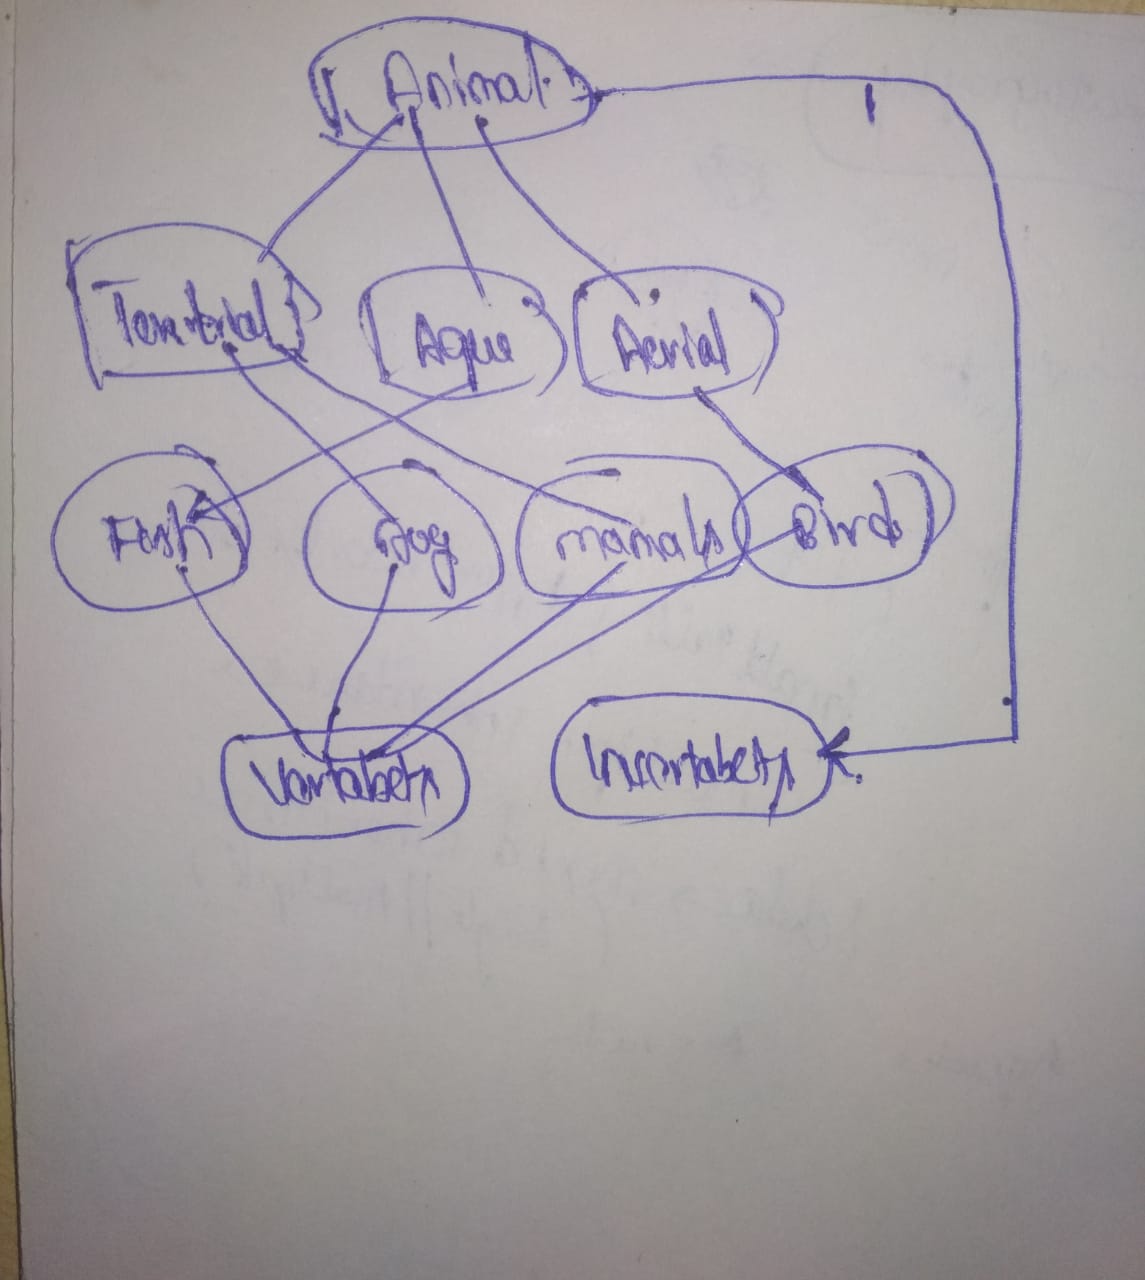 Animal
Terrestrial Aqua Aerial
Fish Dog mamals Birds
Vertabets Invertabets